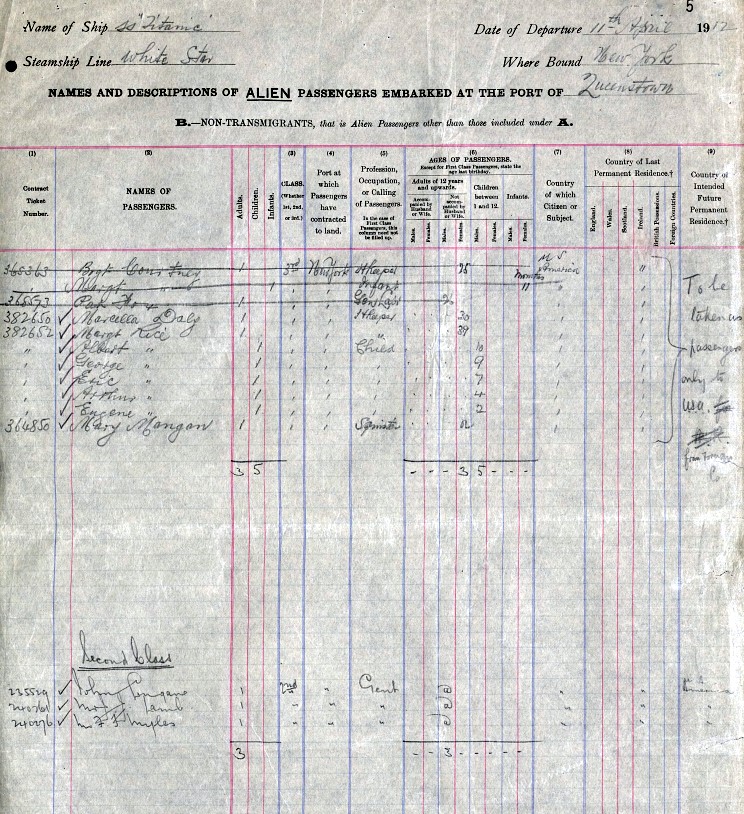 5
Name of Ship SS "Titanic" Date of Departure 11th April 1912
Steamship Line White Star Where Bound New York
NAMES AND DESCRIPTIONS OF ALIEN PASSENGERS EMBARKED AT THE PORT OF Queenstown
B.—NON-TRANSMIGRANTS, that is Alien Passengers other than those included under A.
(1) (2) (3) (4) (5) (6) (7) (8) (9)
Contract Ticket Number.
NAMES OF PASSENGERS.
Adults.
Children.
Infants.
CLASS. (Whether 1st, 2nd, or 3rd.)
Port at which Passengers have contracted to land.
Profession, Occupation, or Calling of Passengers.
In the case of First Class Passengers, this column need not be filled up.
AGES OF PASSENGERS.
Except for First Class Passengers, state the age last birthday.
Adults of 12 years and upwards.
Accompanied by Husband or Wife.
Not accompanied by Husband or Wife.
Children between 1 and 12.
Infants.
Males. Females. Males. Females. Males. Females. Males. Females.
Country of which Citizen or Subject.
Country of Last Permanent Residence.†
England. Wales. Scotland. Ireland. British Possessions. Foreign Countries.
Country of Intended Future Permanent Residence.†
365363 1 3rd New York 35 U S America "
Margt " Infant 11 months
365573 1
382650 ✓ Marcella Daly 1 30
382652 ✓ Margt Rice 1 " 39
" ✓ Albert " 1 Child 10
" ✓ George " 1 9
" ✓ Eric " 1 7
" ✓ Arthur " 1 4
" ✓ Eugene " 1 2
364850 ✓ Mary Mangan 1 Spinster
To be
taken as
passengers
only to
USA.
3 5 - - - 3 5 - - -
Second Class
✓ John 1 2nd " Gent " " America
✓ Lamb 1 " " " " " "
✓ Myles 1 " " " " " "
3 - - 3 - - - - -